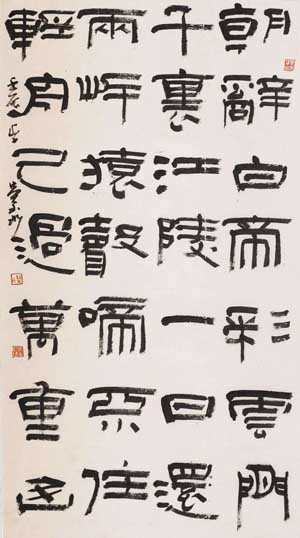 朝辭白帝彩雲間
千裏江陵一日還
兩岸猿聲啼不住
輕舟已過萬重山